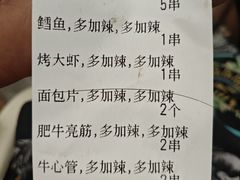 5串
鳕鱼,多加辣,多加辣
1串
烤大虾,多加辣,多加辣
1串
面包片,多加辣,多加辣
2个
肥牛亮筋,多加辣,多加辣
2串
牛心管,多加辣,多加辣